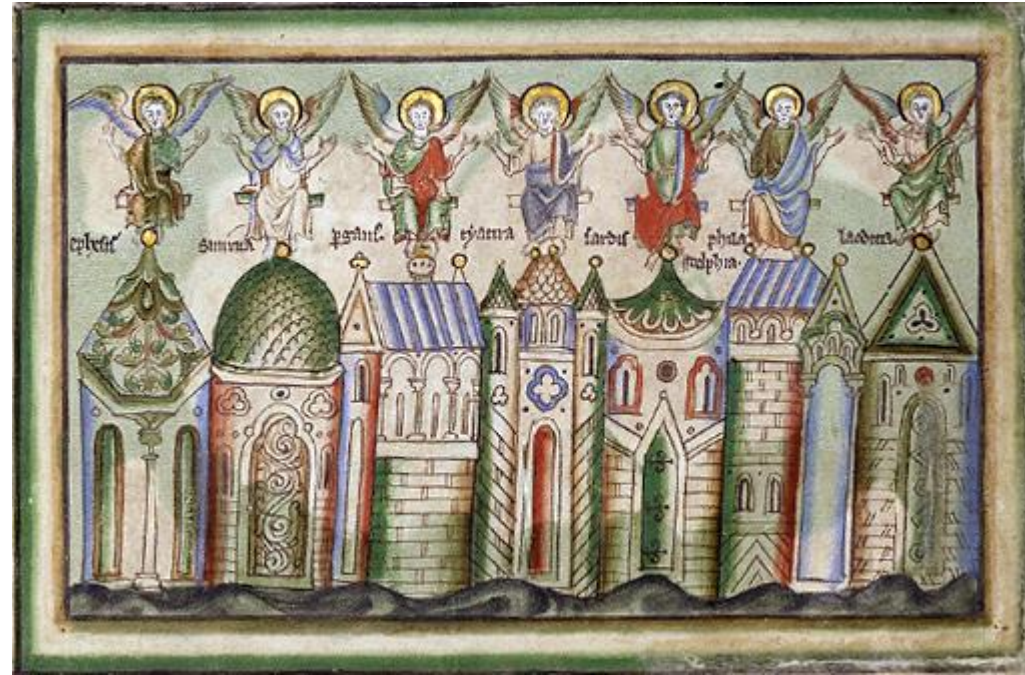 ephesus
smirna
pgam̄.
tyatira
sardis
phila
delphia.
laodicia